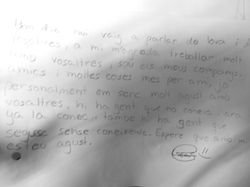 Um dia van vaig a parlar de bra i
vosaltres, a mi m'agrada treballar molt
amb vosaltres, sou els meus companys,
amics i moltes coses mes per ami, jo
personalment em senc molt agust amb
vosaltres, hi ha gent que no coneia, ara
ya la conec, tambe hi ha gent que
segueisc sense coneixerde. Espere que amb mi
esteu agust.